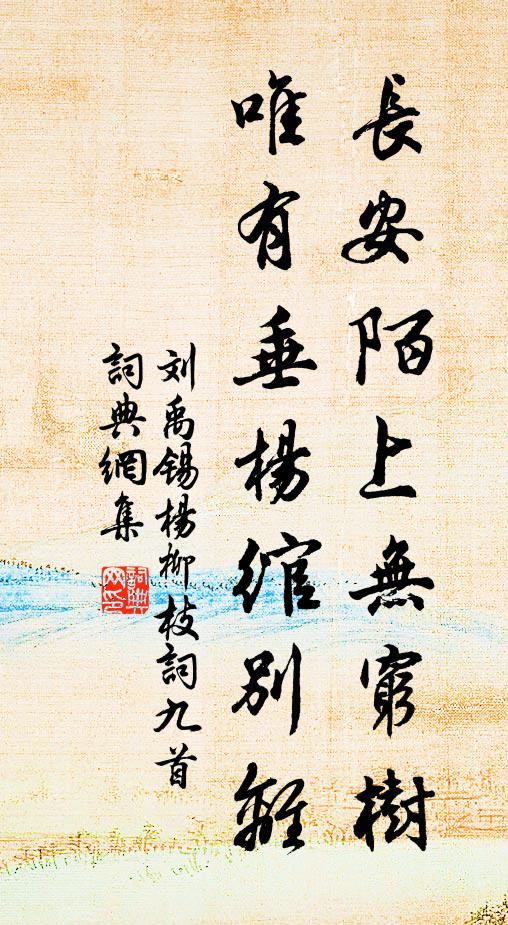 長安陌上無窮樹
唯有垂楊綰別離
刘禹锡楊柳枝詞九首
詞典網集